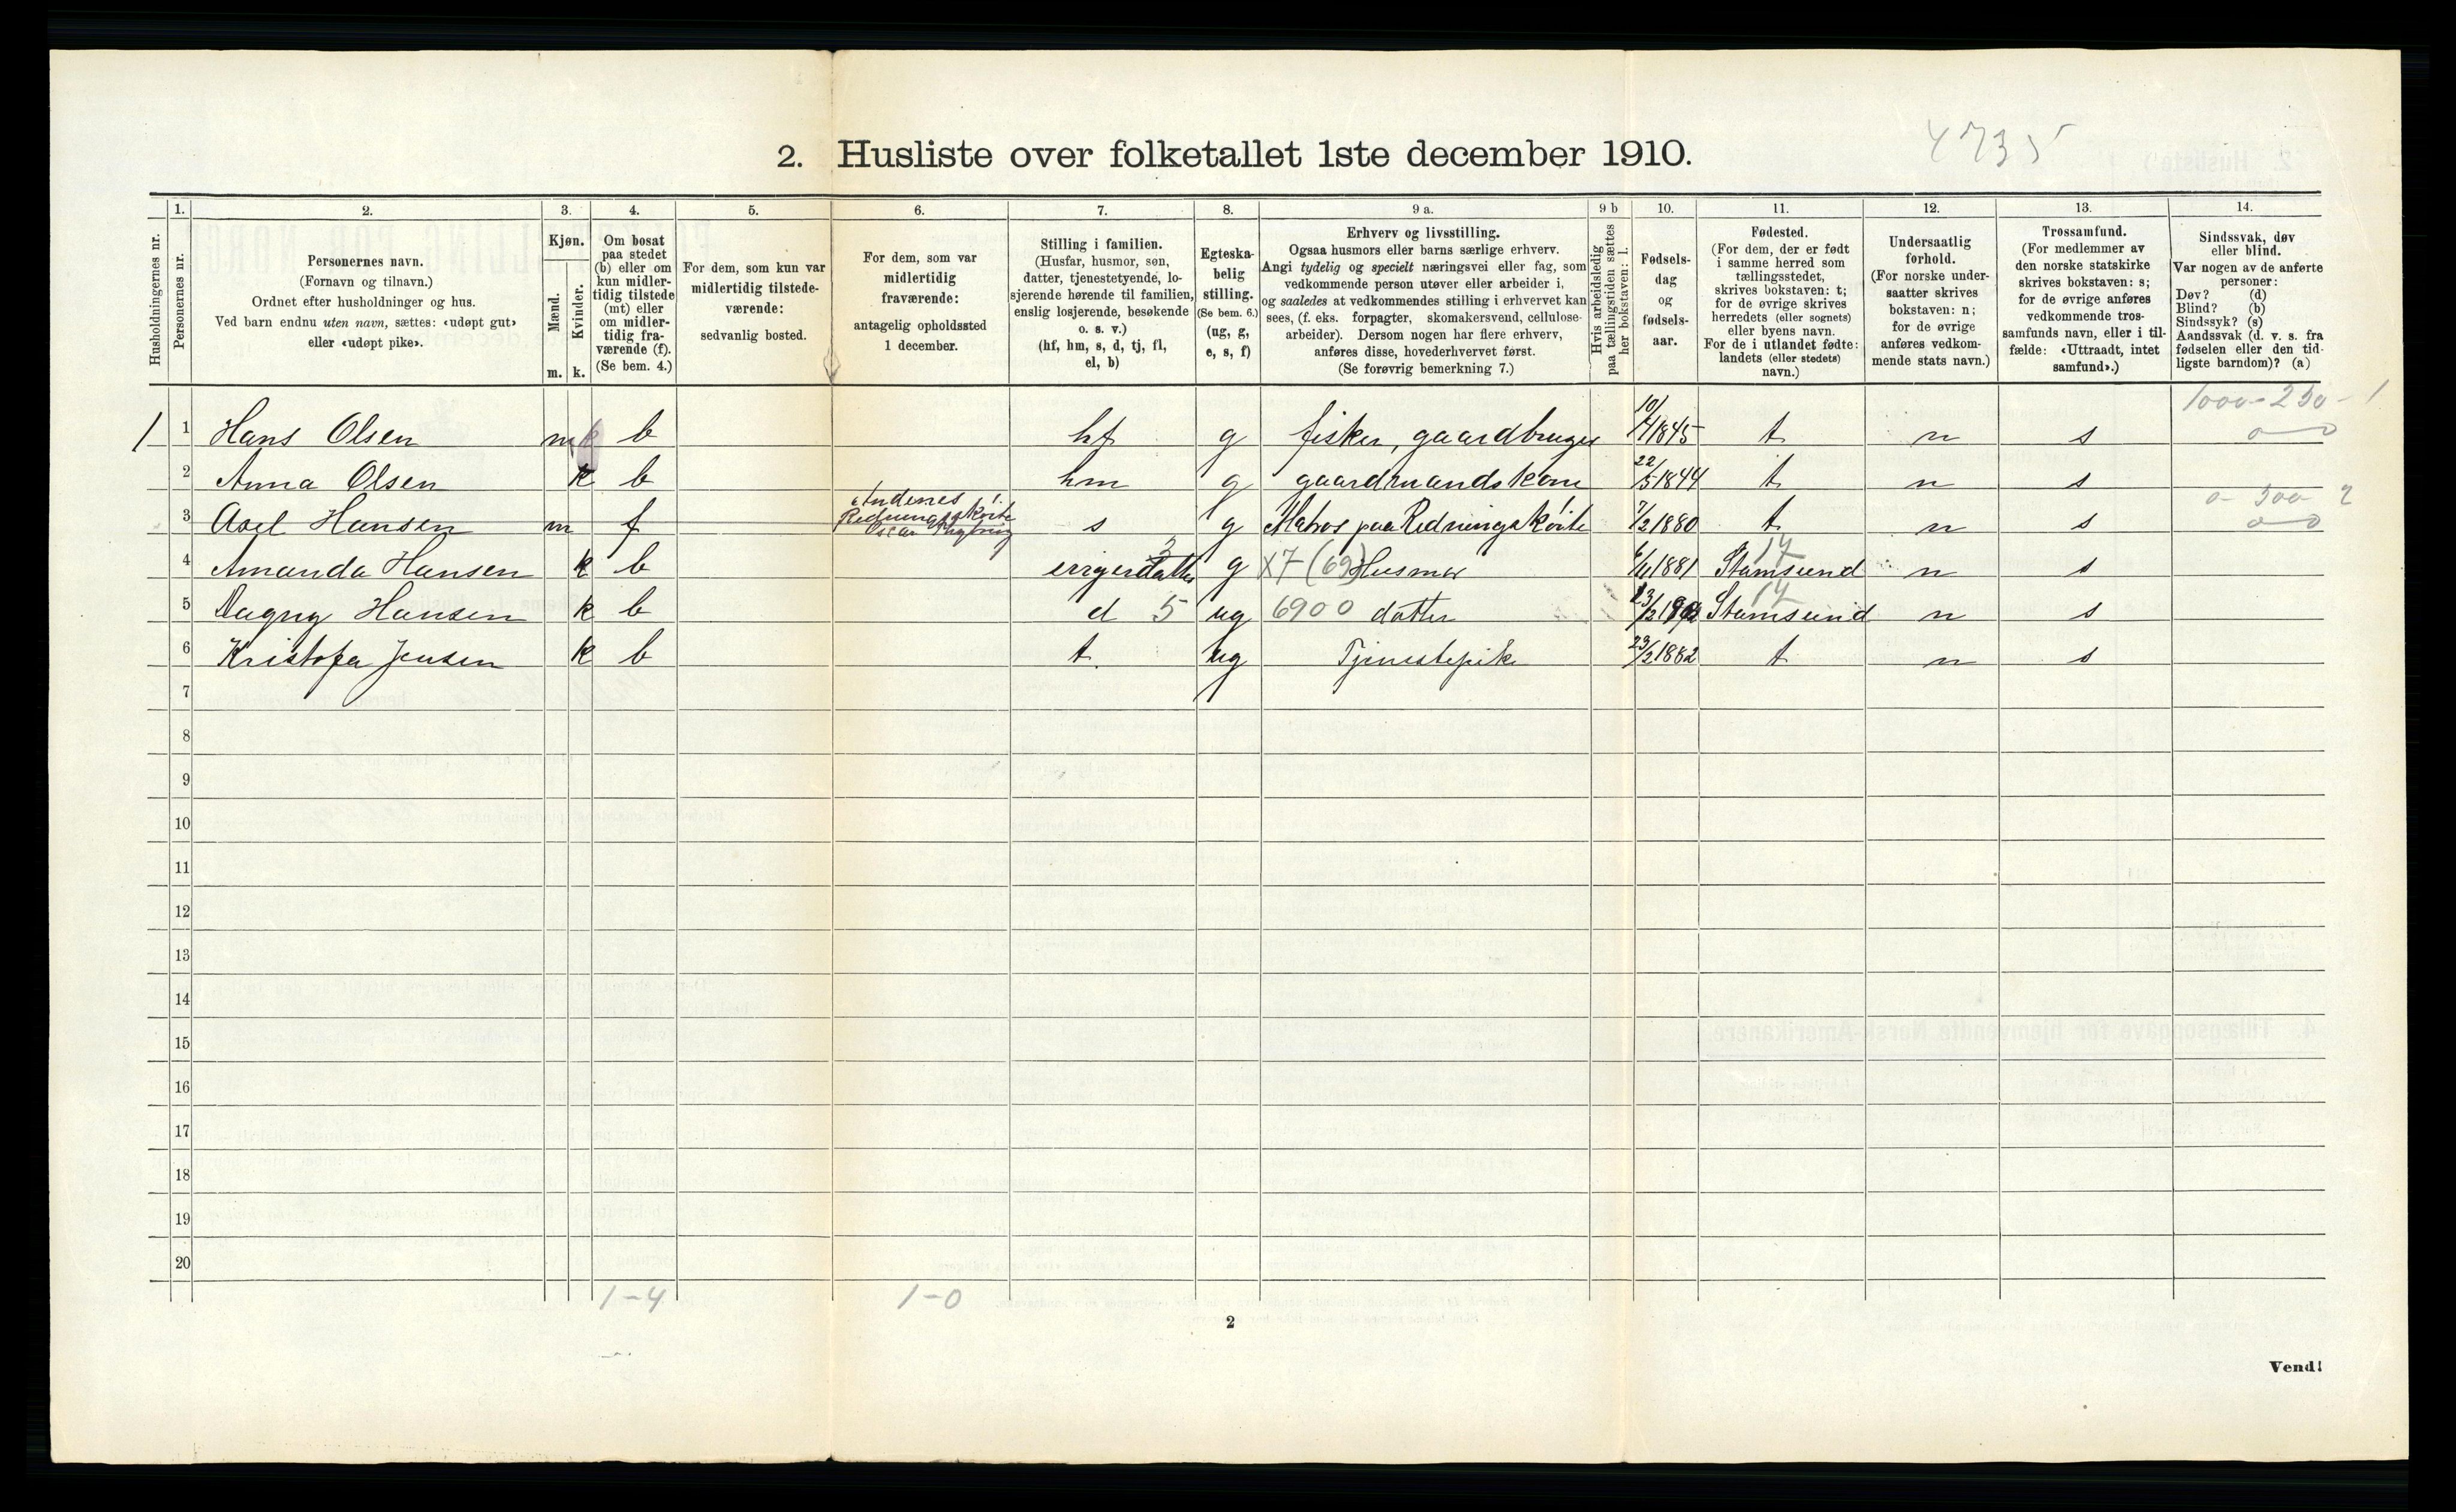 4735
2. Husliste over folketallet 1ste december 1910.
Husholdningernes nr.
1. Personernes nr.
2. Personernes navn.
(Fornavn og tilnavn.)
Ordnet efter husholdninger og hus.
Ved barn endnu uten navn, sættes: «udøpt gut»
eller «udøpt pike».
3. Kjøn.
Mænd. Kvinder.
m. k.
4. Om bosat
paa stedet
(b) eller om
kun midler-
tidig tilstede
(mt) eller
om midler-
tidig fra-
værende (f).
(Se bem. 4.)
5. For dem, som kun var
midlertidig tilstede-
værende:
sedvanlig bosted.
6. For dem, som var
midlertidig
fraværende:
antagelig opholdssted
1 december.
7. Stilling i familien.
(Husfar, husmor, søn,
datter, tjenestetyende, lo-
sjerende hørende til familien,
enslig losjerende, besøkende
o. s. v.)
(hf, hm, s, d, tj, fl,
el, b)
8. Egteska-
belig
stilling.
(Se bem. 6.)
(ug, g,
e, s, f)
9 a. Erhverv og livsstilling.
Ogsaa husmors eller barns særlige erhverv.
Angi tydelig og specielt næringsvei eller fag, som
vedkommende person utøver eller arbeider i,
og saaledes at vedkommendes stilling i erhvervet kan
sees, (f. eks. forpagter, skomakersvend, cellulose-
arbeider). Dersom nogen har flere erhverv,
anføres disse, hovederhvervet først.
(Se forøvrig bemerkning 7.)
9 b Hvis arbeidsledig
paa tællingstiden sættes
her bokstaven: l.
10. Fødsels-
dag
og
fødsels-
aar.
11. Fødested.
(For dem, der er født
i samme herred som
tællingsstedet,
skrives bokstaven: t;
for de øvrige skrives
herredets (eller sognets)
eller byens navn.
For de i utlandet fødte:
landets (eller stedets)
navn.)
12. Undersaatlig
forhold.
(For norske under-
saatter skrives
bokstaven: n;
for de øvrige
anføres vedkom-
mende stats navn.)
13. Trossamfund.
(For medlemmer av
den norske statskirke
skrives bokstaven: s;
for de øvrige anføres
vedkommende tros-
samfunds navn, eller i til-
fælde: «Uttraadt, intet
samfund».)
14. Sindssvak, døv
eller blind.
Var nogen av de anførte
personer:
Døv? (d)
Blind? (b)
Sindssyk? (s)
Aandssvak (d. v. s. fra
fødselen eller den tid-
ligste barndom)? (a)
1000-250-1
1 1 Hans Olsen m k b hf g fisker, gaardbruger 10/4 1845 t n s 0-0
2 Anna Olsen k b hm g gaardmandskone 22/5 1844 t n s
0-300 2
3 Axel Hansen m f Andenes Redningsskøite s g Matros paa Redningskøite 7/2 1880 t n s 0-0
4 Amanda Hansen k b g X7 (69) Husmor 6/11 1881 Stamsund 14 n s
5 Dagny Hansen k b d 5 ug 6900 datter Stamsund 14 n s
6 Kristofa Jensen k b t. ug Tjenestepike 23/2 1882 t n s
7
8
9
10
11
12
13
14
15
16
17
18
19
20
1-4 1-0
2
Vend!